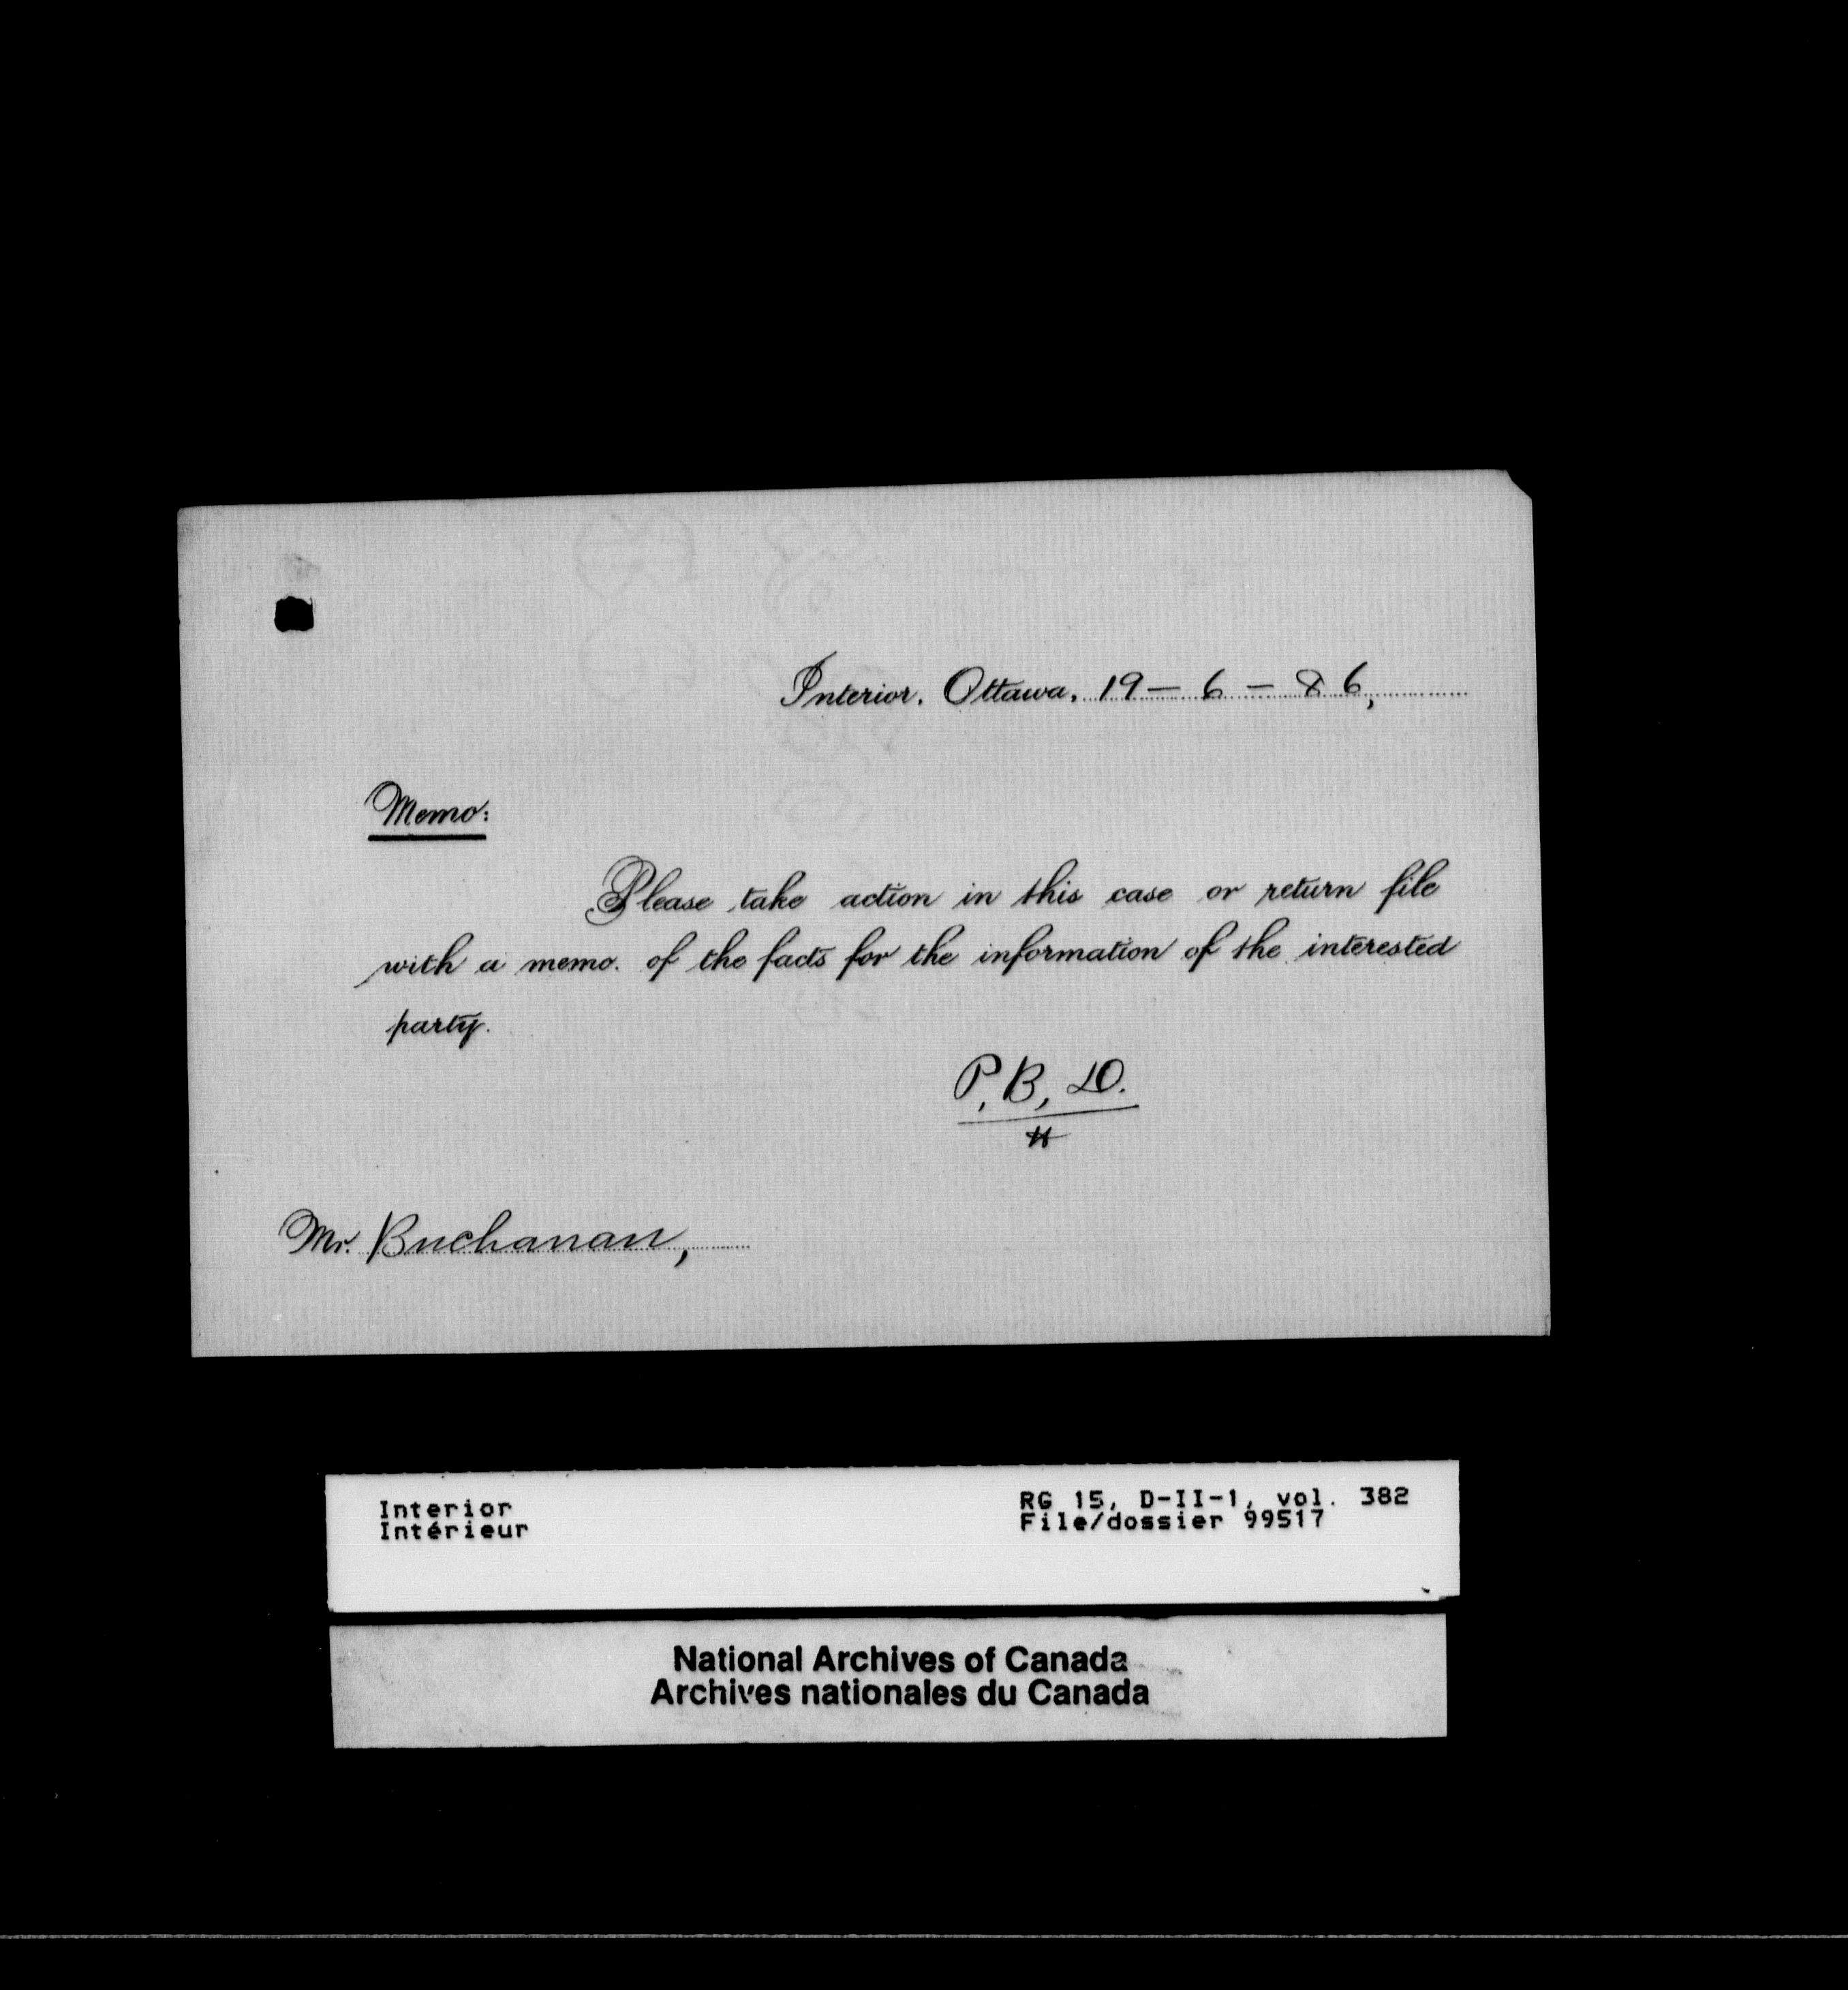 Interior, Ottawa, 19 – 6 – 86,
Memo:
Please take action in this case or return file
with a memo. of the facts for the information of the interested
party.
P, B, D.
Mr. Buchanan,
Interior
Intérieur
RG 15, D-II-1, vol. 382
File/dossier 99517
National Archives of Canada
Archives nationales du Canada